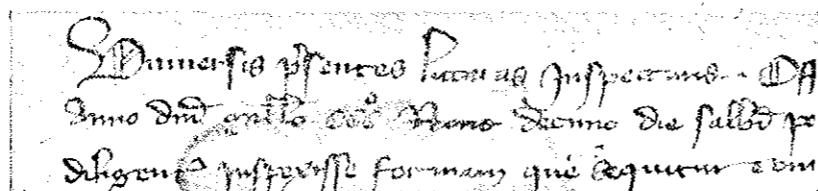 Universis psentes litteras Inspecturis . Off
Anno dnī millo CCCº Nono decimo die sabbī po
diligent inspexisse formam que sequitur cont